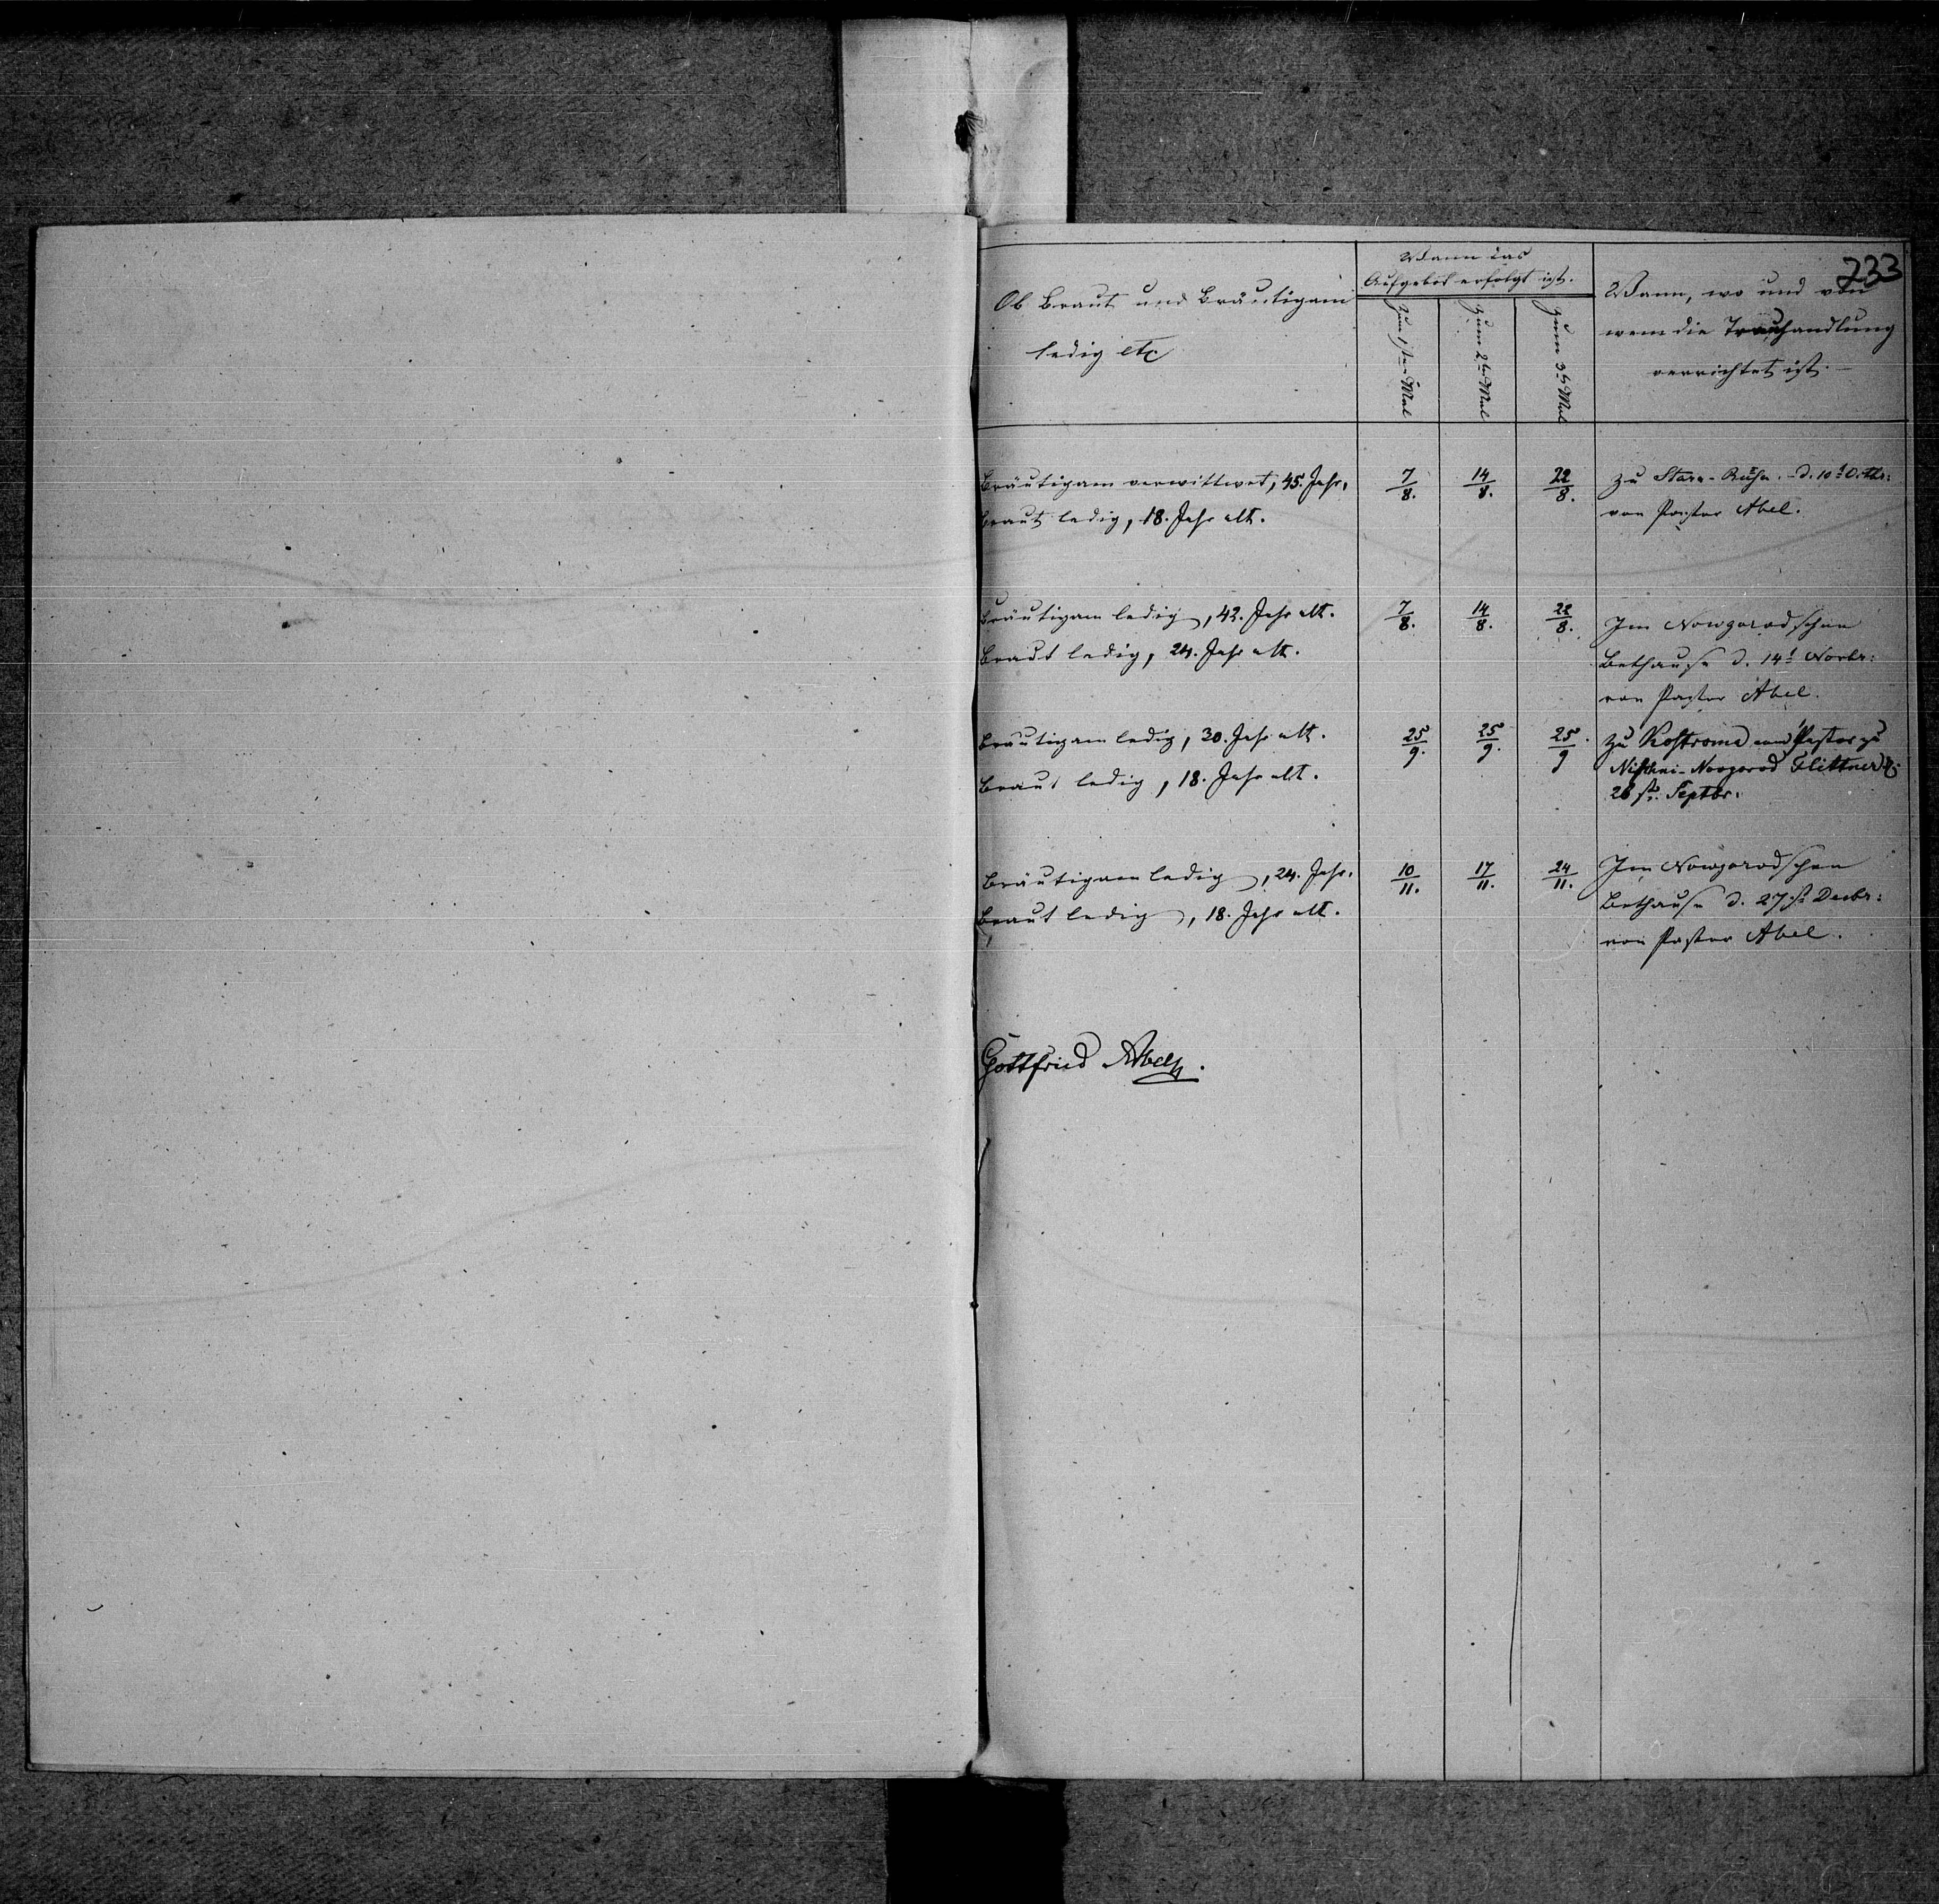 233
Ob Braut und Bräutigam
ledig etc
Wann das
Aufgebot erfolgt ist.
zum 1sten Mal
zum 2ten Mal
zum 3ten Mal
Wann, wo und von
wem die Trauhandlung
verrichtet ist. —
Bräutigam verwittwet, 45. Jahr,
Braut ledig, 18. Jahr alt.
7/8. 14/8. 22/8.
Zu Stara- d. 10t Octbr:
von Pastor Abel.
Bräutigam ledig, 42. Jahr alt.
Braut ledig, 24. Jahr alt.
7/8. 14/8. 22/8.
Im Nowgorodschen
Bethause d. 14t Novbr:
von Pastor Abel.
Bräutigam ledig, 30. Jahr alt.
Braut ledig, 18. Jahr alt.
25/9. 25/9. 25/9
Zu Kostroma vom Pastor zu
Nischni-Novgorod Flittner d:
26ste Septbr.
Bräutigam ledig, 24. Jahr.
Braut ledig, 18. Jahr alt.
10/11. 17/11. 24/11.
Im Nowgorodschen
Bethause d. 27st Decbr:
von Pastor Abel.
Gottfried Abel.